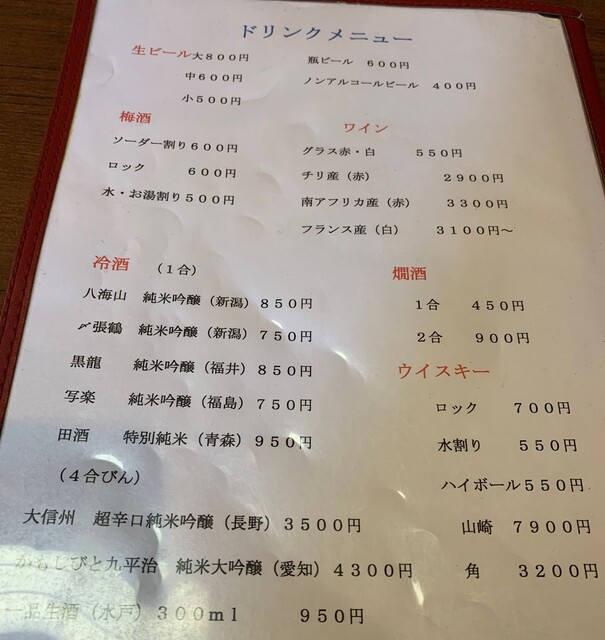 ドリンクメニュー
生ビール大８００円
中６００円
小５００円
瓶ビール　６００円
ノンアルコールビール　４００円
梅酒
ソーダー割り６００円
ロック　６００円
水・お湯割り５００円
ワイン
グラス赤・白　５５０円
チリ産（赤）　２９００円
南アフリカ産（赤）　３３００円
フランス産（白）　３１００円～
冷酒　（１合）
八海山　純米吟醸（新潟）８５０円
〆張鶴　純米吟醸（新潟）７５０円
黒龍　純米吟醸（福井）８５０円
写楽　純米吟醸（福島）７５０円
田酒　特別純米（青森）９５０円
（４合びん）
大信州　超辛口純米吟醸（長野）３５００円
かもしびと九平治　純米大吟醸（愛知）４３００円
一品生酒（水戸）３００ｍｌ　９５０円
燗酒
１合　４５０円
２合　９００円
ウイスキー
ロック　７００円
水割り　５５０円
ハイボール５５０円
山崎　７９００円
角　３２００円